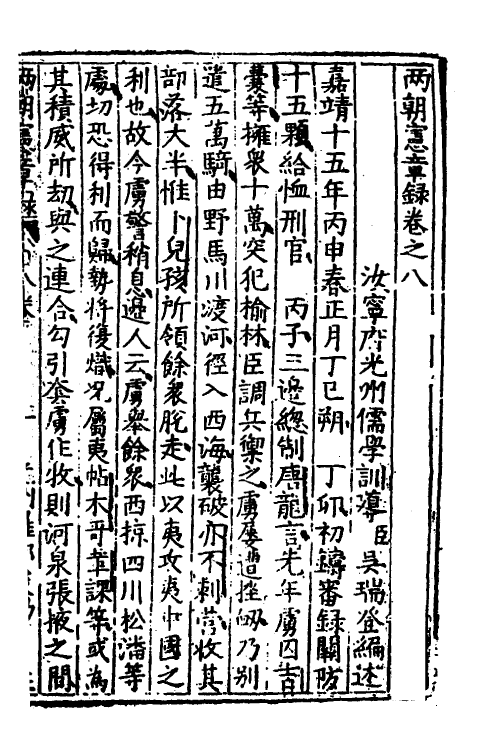 两朝憲章録卷之八
汝寧府光州儒學訓導臣吳瑞登編述
嘉靖十五年丙申春正月丁巳朔 丁卯初鑄審録關防
十五顆給恤刑官 丙子三邊總制唐龍言先年虜囚吉
囊等擁衆十萬突犯榆林臣調兵禦之虜屢遭挫衂乃別
遣五萬騎由野馬川渡河徑入西海襲破亦不剌營收其
部落大半惟卜兒孩所領餘衆脫走此以夷攻夷中國之
利也故今虜警稍息邊人云虜舉餘衆西掠四川松潘等
處切恐得利而歸勢將復熾况屬夷帖木哥等課等或為
其積威所刼與之連合勾引套虜作牧則河泉張掖之間
两朝憲章録